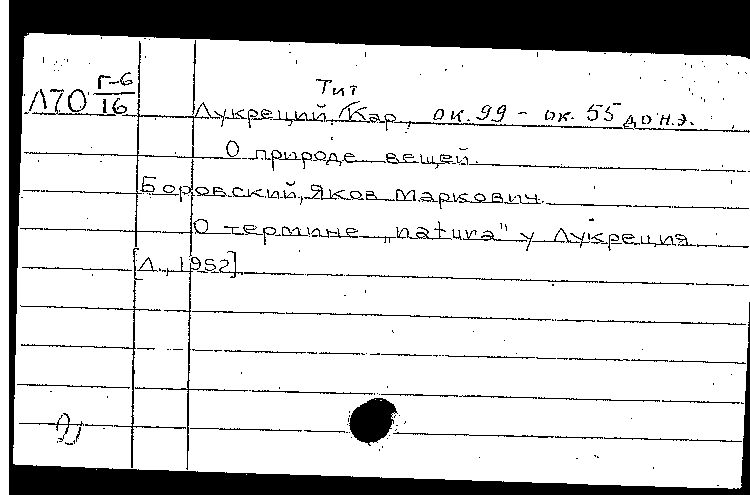 Тит
Л70 Г-6/16 Лукреций Кар, ок. 99 - ок. 55 до н.э.
О природе вещей.
Боровский, Яков Маркович.
О термине „natura" у Лукреция
[Л., 1952].